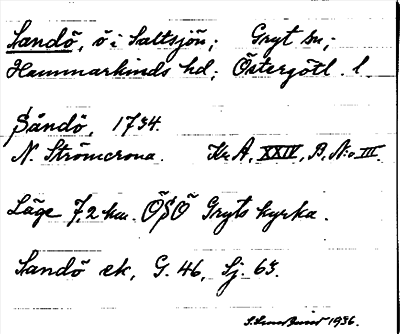 Sandö, ö i Saltsjön; Gryt sn;
Hammarkinds hd; Östergötl. l.
Sandö, 1734.
N. Strömcrona. Kr. A, XXIV, B, N:o III.
Läge 7,2 km. ÖSÖ Gryts kyrka.
Sandö ek, G. 46, Sj. 63.
1936.